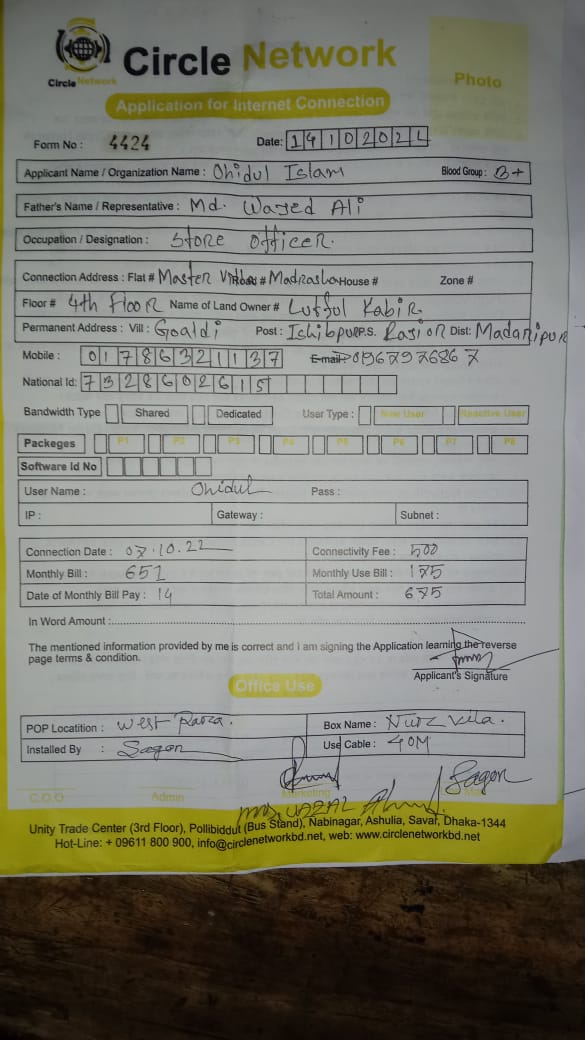 Circle Network
Circle Network
Photo
Application for Internet Connection
Form No : 4424 Date: 14102022
Applicant Name / Organization Name : Ohidul Islam Blood Group : B+
Father's Name / Representative : Md. Wazed Ali
Occupation / Designation : Store officer.
Connection Address : Flat # Master Road # Madrasha House # Zone #
Floor # 4th Floor Name of Land Owner # Lutful Kabir
Permanent Address : Vill : Goaldi Post : Ishibpur P.S. Rajior Dist: Madaripur
Mobile : 01786321137 E-mail: 01967976867
National Id: 7328602615
Bandwidth Type Shared Dedicated User Type : New User Reactive User
Packeges P1 P2 P3 P4 P5 P6 P7 P8
Software Id No
User Name : Ohidul Pass :
IP : Gateway : Subnet :
Connection Date : 07.10.22 Connectivity Fee : 500
Monthly Bill : 651 Monthly Use Bill : 175
Date of Monthly Bill Pay : 14 Total Amount : 675
In Word Amount :
The mentioned information provided by me is correct and i am signing the Application learning the reverse
page terms & condition.
Applicant's Signature
Office Use
POP Locatition : West Box Name : Vila.
Installed By : Sagor Use Cable : 40M
Sagor
C.O.O Admin Marketing
Unity Trade Center (3rd Floor), Pollibiddut (Bus Stand), Nabinagar, Ashulia, Savar, Dhaka-1344
Hot-Line: + 09611 800 900, info@circlenetworkbd.net, web: www.circlenetworkbd.net